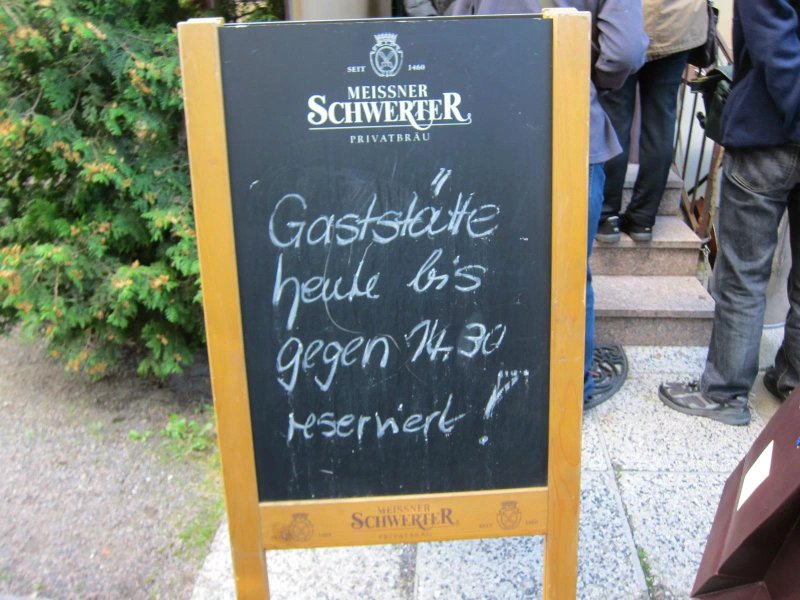 SEIT 1460
MEISSNER
SCHWERTER
PRIVATBRÄU
Gaststätte
heute bis
gegen 14.30
reserviert!
MEISSNER
SCHWERTER
PRIVATBRÄU
SEIT 1460